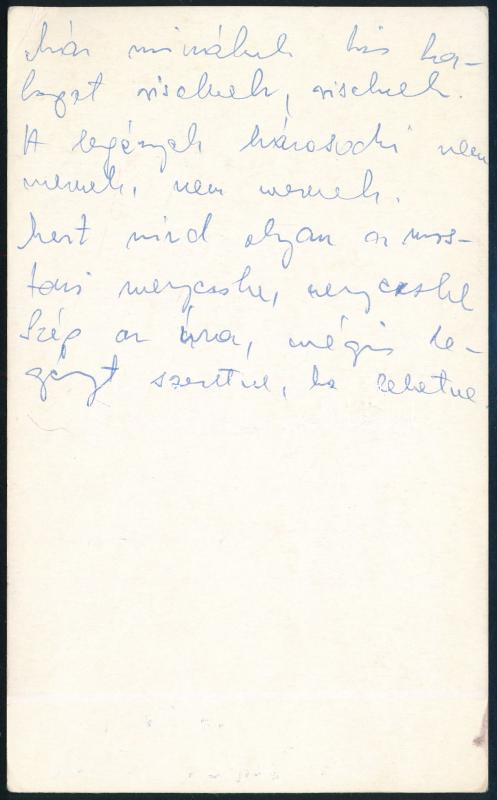 már minálunk kis ka-
lapot viselnek, viselnek.
A legények házasodni nem
mernek, nem mernek.
Mert mind olyan a mos-
tani menyecske, menyecske
Szép az ura, mégis le-
gényt szeretne, ha lehetne